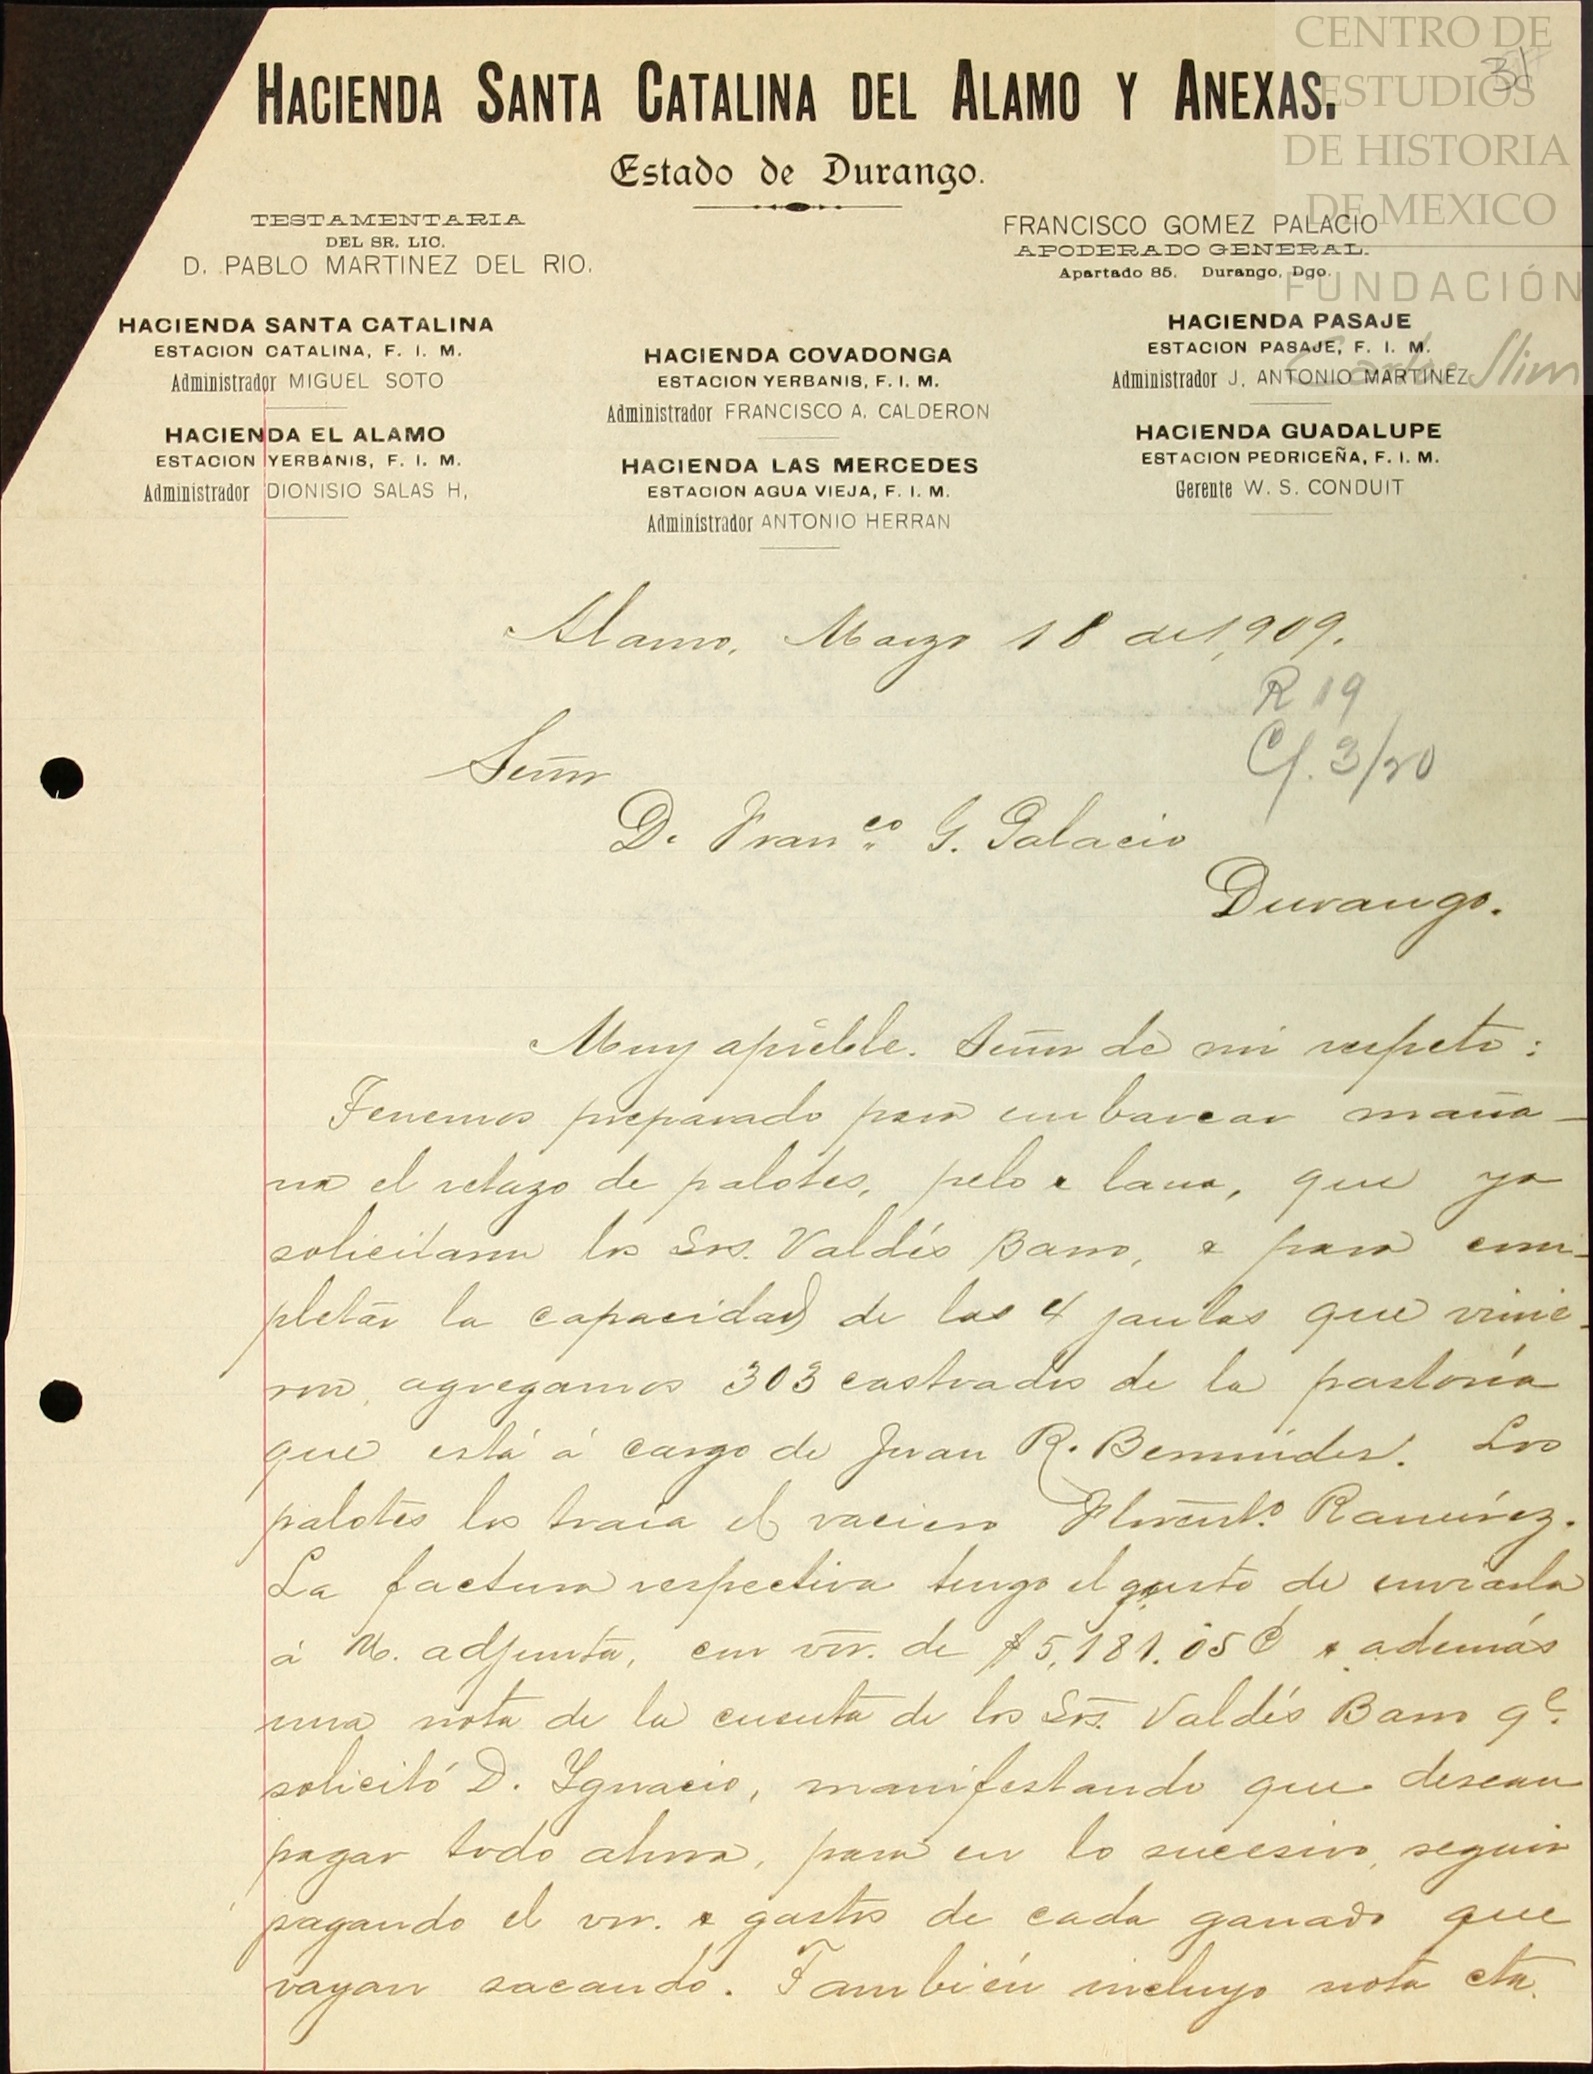 CENTRO DE
ESTUDIOS
DE HISTORIA
DE MEXICO
FUNDACIÓN
Carlos Slim
31
HACIENDA SANTA CATALINA DEL ALAMO Y ANEXAS.
Estado de Durango.
TESTAMENTARIA
DEL SR. LIC.
D. PABLO MARTINEZ DEL RIO.
FRANCISCO GOMEZ PALACIO
APODERADO GENERAL.
Apartado 85. Durango, Dgo.
HACIENDA SANTA CATALINA
ESTACION CATALINA, F. I. M.
Administrador MIGUEL SOTO
HACIENDA EL ALAMO
ESTACION YERBANIS, F. I. M.
Administrador DIONISIO SALAS H,
HACIENDA COVADONGA
ESTACION YERBANIS, F. I. M.
Administrador FRANCISCO A. CALDERON
HACIENDA LAS MERCEDES
ESTACION AGUA VIEJA, F. I. M.
Administrador ANTONIO HERRAN
HACIENDA PASAJE
ESTACION PASAJE, F. I. M.
Administrador J. ANTONIO MARTINEZ
HACIENDA GUADALUPE
ESTACION PEDRICEÑA, F. I. M.
Gerente W. S. CONDUIT
Alamo, Marzo 18 de 1,909.
R 19
Cf. 3/20
Señor
D. Franco. G. Palacio
Durango.
Muy apreble. Señor de mi respeto:
Tenemos preparado para embarcar maña-
na el retazo de palotes, pelo e lana, que ya
solicitaron los Srs. Valdés Barro, e para com-
pletar la capacidad de las 4 jaulas que vinie-
ron, agregamos 303 castrados de la pastoría
que está á cargo de Juan R. Bermúdes. Los
palotes los traía el vaciero Florento. Ramírez.
La factura respectiva tengo el gusto de enviarla
á U. adjunta, con vor. de $5,181.05¢ e además
una nota de la cuenta de los Srs. Valdés Barro qe.
solicitó D. Ygnacio, manifestando que desean
pagar todo ahora, para en lo sucesivo, seguir
pagando el vor. e gastos de cada ganado que
vayan sacando. También incluyo nota cta.